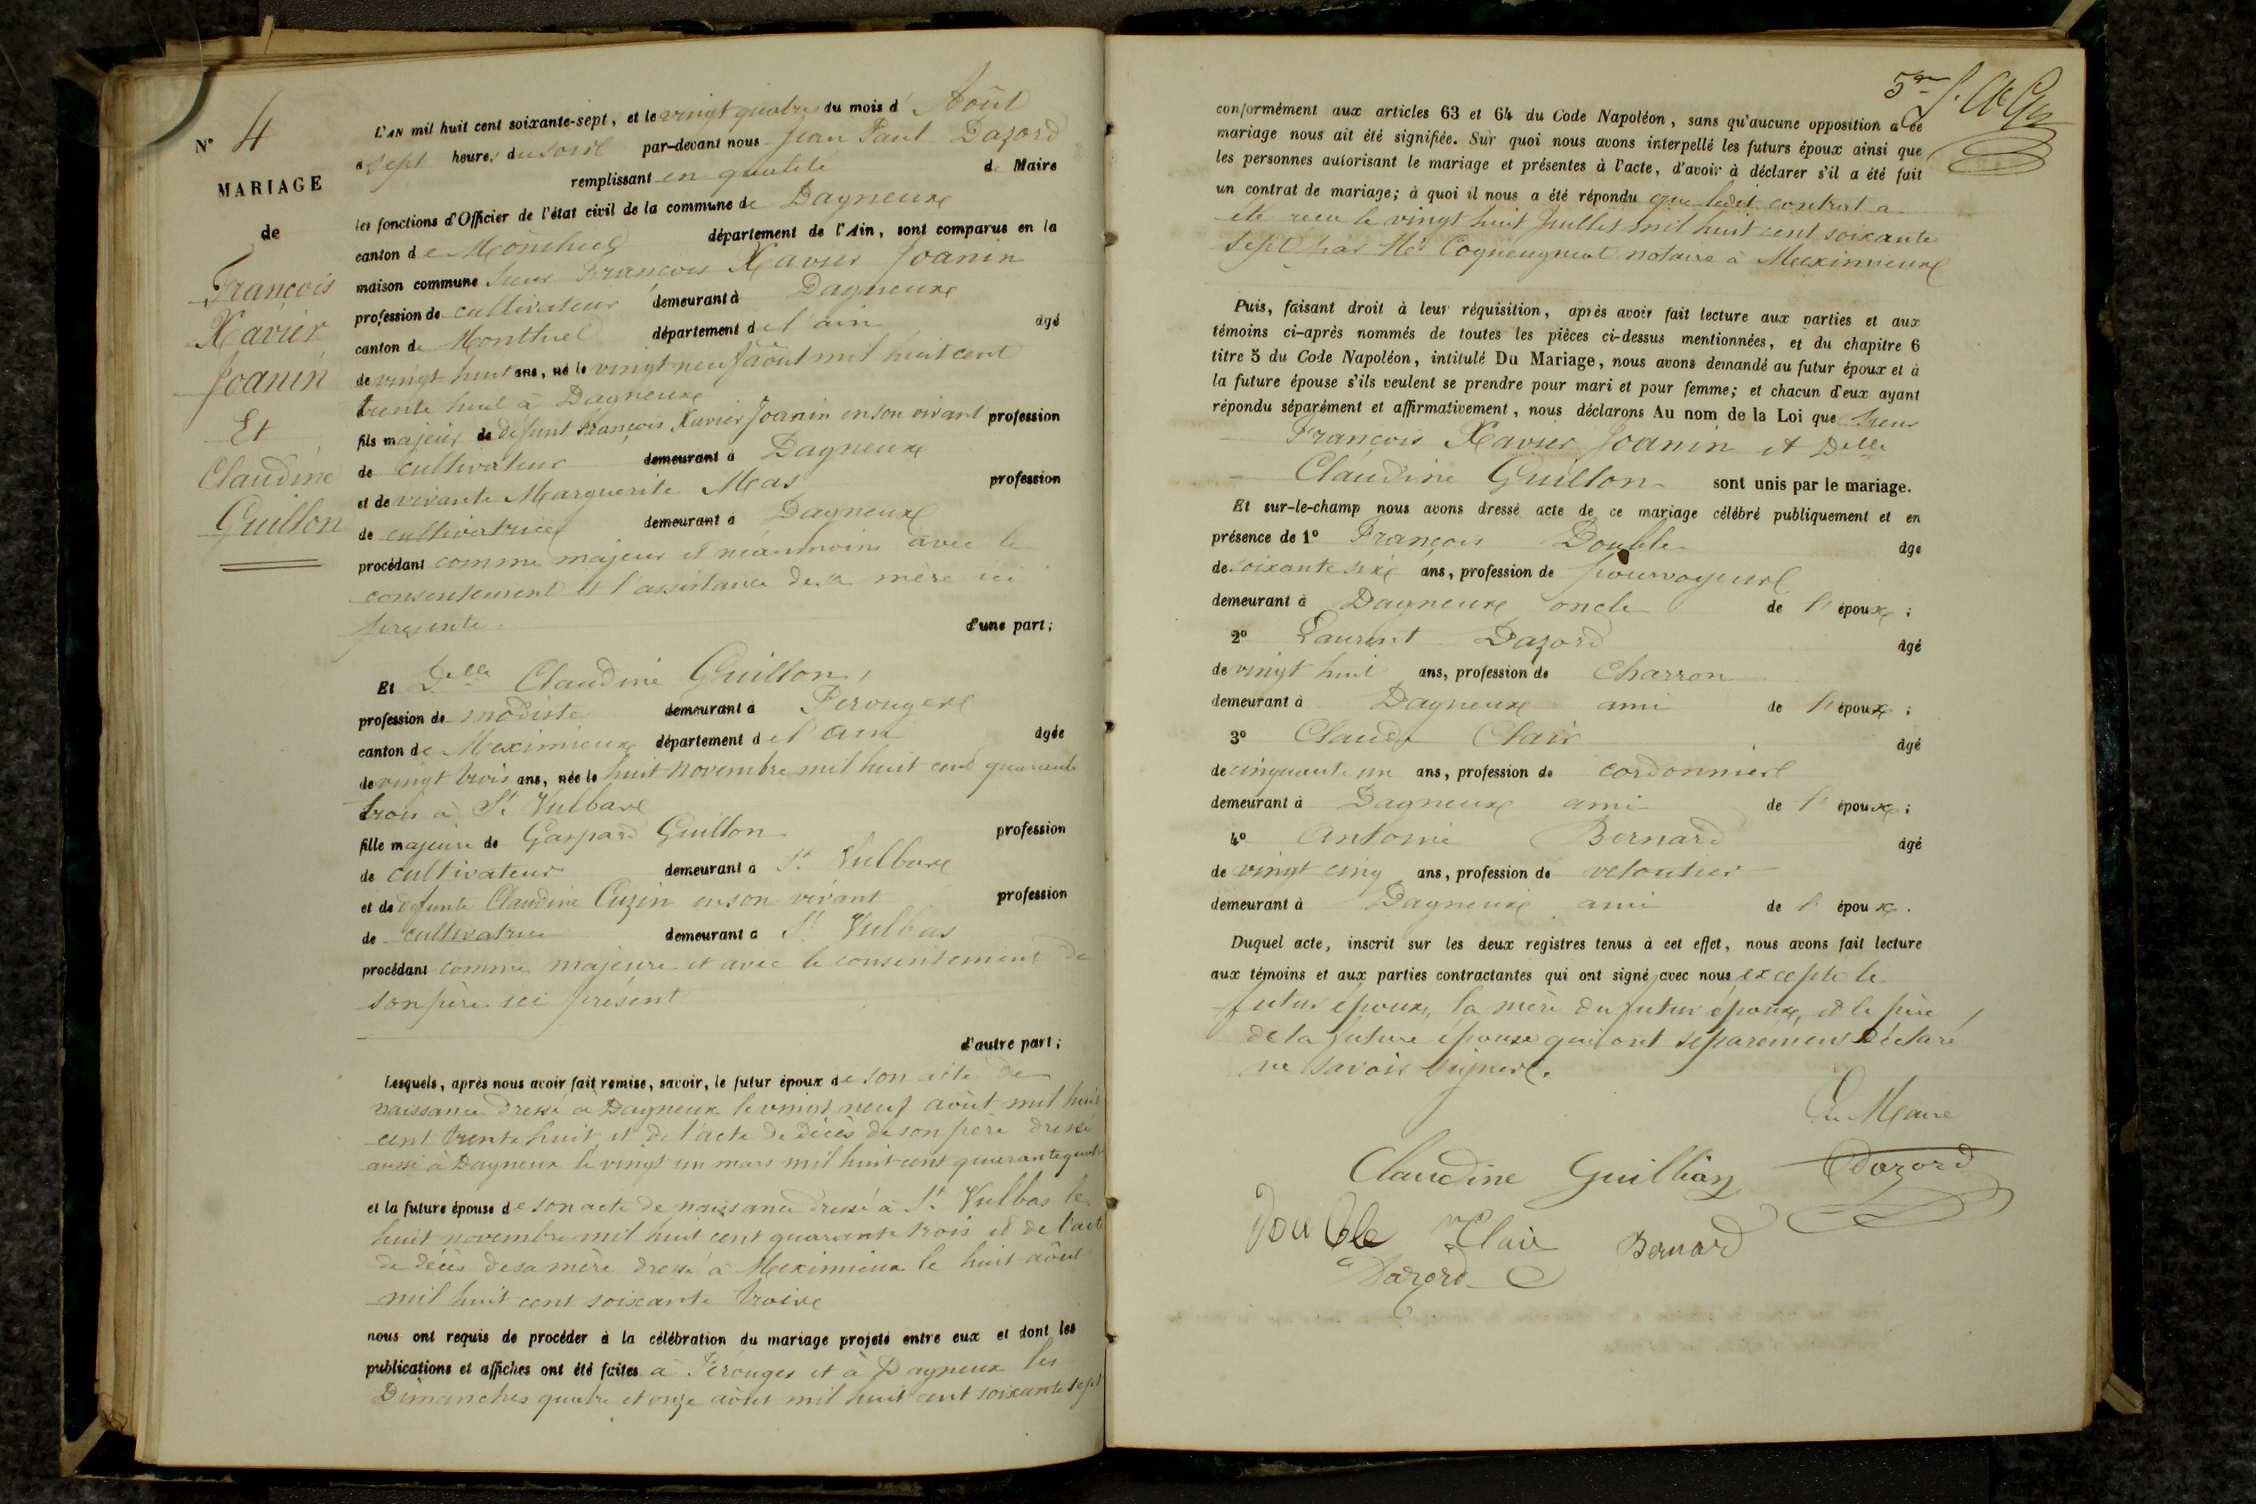 N° 4
MARIAGE
de
François
Xavier
Joanin
Et
Claudine
Guillon
L'AN mil huit cent soixante-sept, et le vingt quatre du mois d'Août
à sept heures du soir par-devant nous Jean Paul Dazord
remplissant en qualité de Maire
les fonctions d'Officier de l'état civil de la commune de Dagneux
canton de Montluel département de l'Ain, sont comparus en la
maison commune Sieur François Xavier Joanin
profession de cultivateur demeurant à Dagneux
canton de Montluel département de l'ain âgé
de vingt huit ans, né le vingt neuf août mil huit cent
trente huit à Dagneux
fils majeur de défunt François Xavier Joanin en son vivant profession
de cultivateur demeurant à Dagneux
et de vivante Marguerite Mas profession
de cultivatrice demeurant à Dagneux
procédant comme majeur et néanmoins avec le
consentement et l'assistance de sa mère ici
présente. d'une part;
Et Delle Claudine Guillon,
profession de modiste demeurant à Perouges
canton de Meximieux département de l'ain âgée
de vingt trois ans, née le huit novembre mil huit cent quarante
trois à St Vulbas
fille majeure de Gaspard Guillon profession
de cultivateur demeurant à St Vulbas
et de défunte Claudine Cuzin en son vivant profession
de cultivatrice demeurant à St Vulbas
procédant comme majeure et avec le consentement de
son père ici présent
d'autre part;
Lesquels, après nous avoir fait remise, savoir, le futur époux de son acte de
naissance dressé à Dagneux le vingt neuf août mil huit
cent trente huit et de l'acte de décès de son père dressé
aussi à Dagneux le vingt un mars mil huit cent quarante quatre
et la future épouse de son acte de naissance dressé à St Vulbas le
huit novembre mil huit cent quarante trois et de l'acte
de décès de sa mère dressé à Meximieux le huit août
mil huit cent soixante
nous ont requis de procéder à la célébration du mariage projeté entre eux et dont les
publications et affiches ont été faites à Pérouges et à Dagneux les
Dimanches quatre et onze août mil huit cent soixante sept
5me
conformément aux articles 63 et 64 du Code Napoléon, sans qu'aucune opposition à ce
mariage nous ait été signifiée. Sur quoi nous avons interpellé les futurs époux ainsi que
les personnes autorisant le mariage et présentes à l'acte, d'avoir à déclarer s'il a été fait
un contrat de mariage; à quoi il nous a été répondu que ledit contrat a
été recu le vingt huit Juillet mil huit cent soixante
sept par Me Cogneugneot notaire à Meximieux
Puis, faisant droit à leur réquisition, après avoir fait lecture aux parties et aux
témoins ci-après nommés de toutes les pièces ci-dessus mentionnées, et du chapitre 6
titre 5 du Code Napoléon, intitulé Du Mariage, nous avons demandé au futur époux et à
la future épouse s'ils veulent se prendre pour mari et pour femme; et chacun d'eux ayant
répondu séparément et affirmativement, nous déclarons Au nom de la Loi que Sieur
François Xavier Joanin et Delle
Claudine Guillon sont unis par le mariage.
Et sur-le-champ nous avons dressé acte de ce mariage célébré publiquement et en
présence de 1° François Double âgé
de soixante six ans, profession de pourvoyeur
demeurant à Dagneux oncle de l'époux;
2° Laurent Dazord âgé
de vingt huit ans, profession de Charron
demeurant à Dagneux ami de l'époux;
3° Claude Clair âgé
de cinquante un ans, profession de cordonnier
demeurant à Dagneux ami de l'époux;
4° Antoine Bernard âgé
de vingt cinq ans, profession de veloutier
demeurant à Dagneux ami de l'époux.
Duquel acte, inscrit sur les deux registres tenus à cet effet, nous avons fait lecture
aux témoins et aux parties contractantes qui ont signé avec nous excepté le
futur époux, la mère du futur époux, et le père
de la future épouse qui ont séparément déclaré
ne savoir signer.
Le Maire
Claudine Guillion Dazord
Double Clair Bernard
Dazord